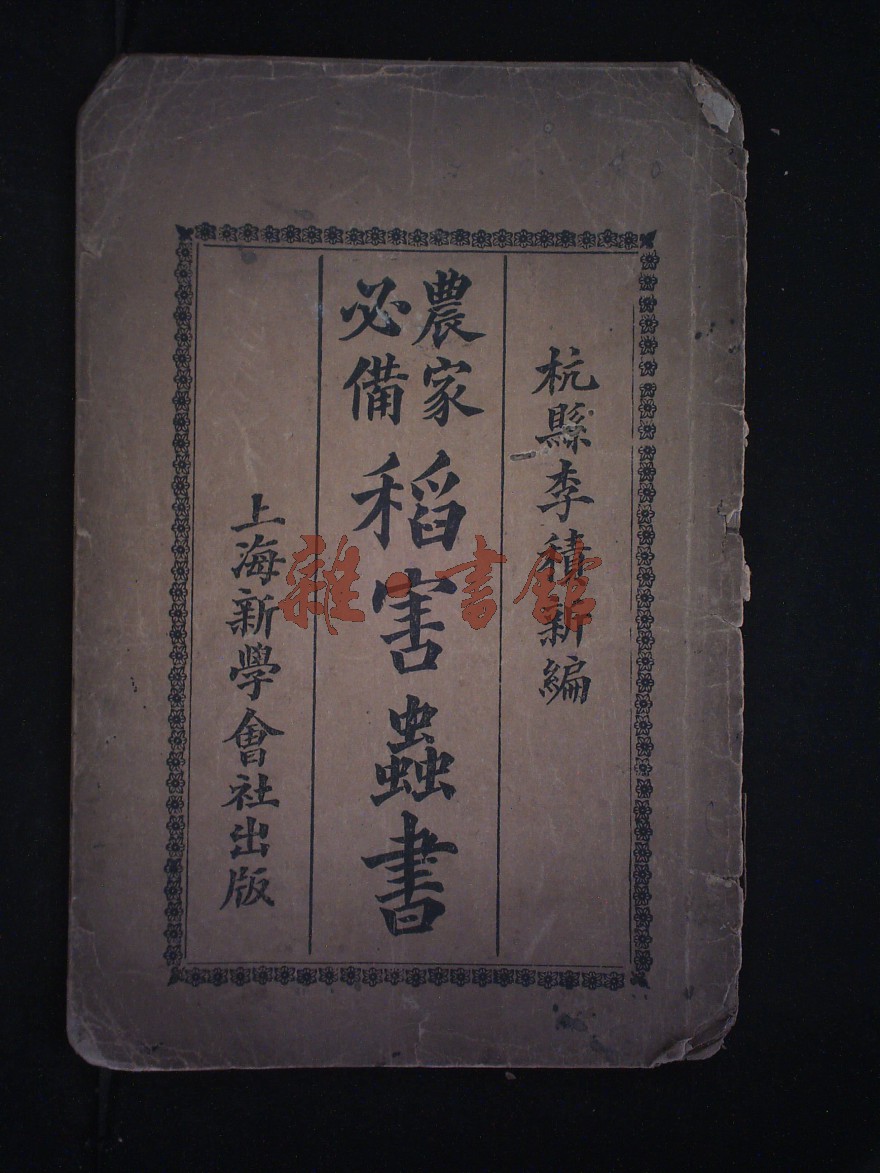 杭縣李積新編
農家
必備
稻害蟲書
上海新學會社出版
雜·書館